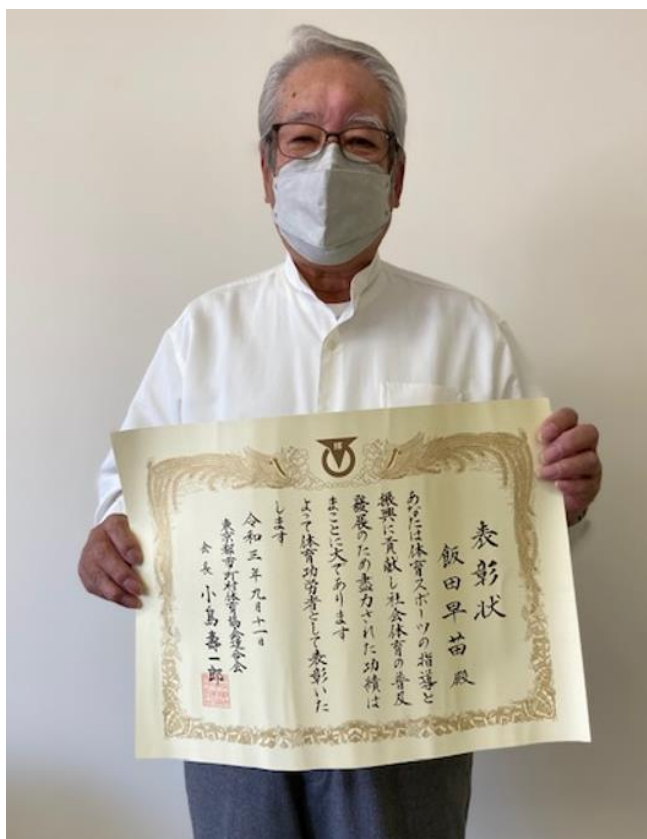 表彰状
飯田早苗殿
あなたは体育スポーツの指導と
振興に貢献し社会体育の普及
發展のため盡力された功績は
まことに大であります
よって体育功労者として表彰いた
します
令和三年九月十一日
東京都市町村体育協会連合会
会長 小島壽一郎